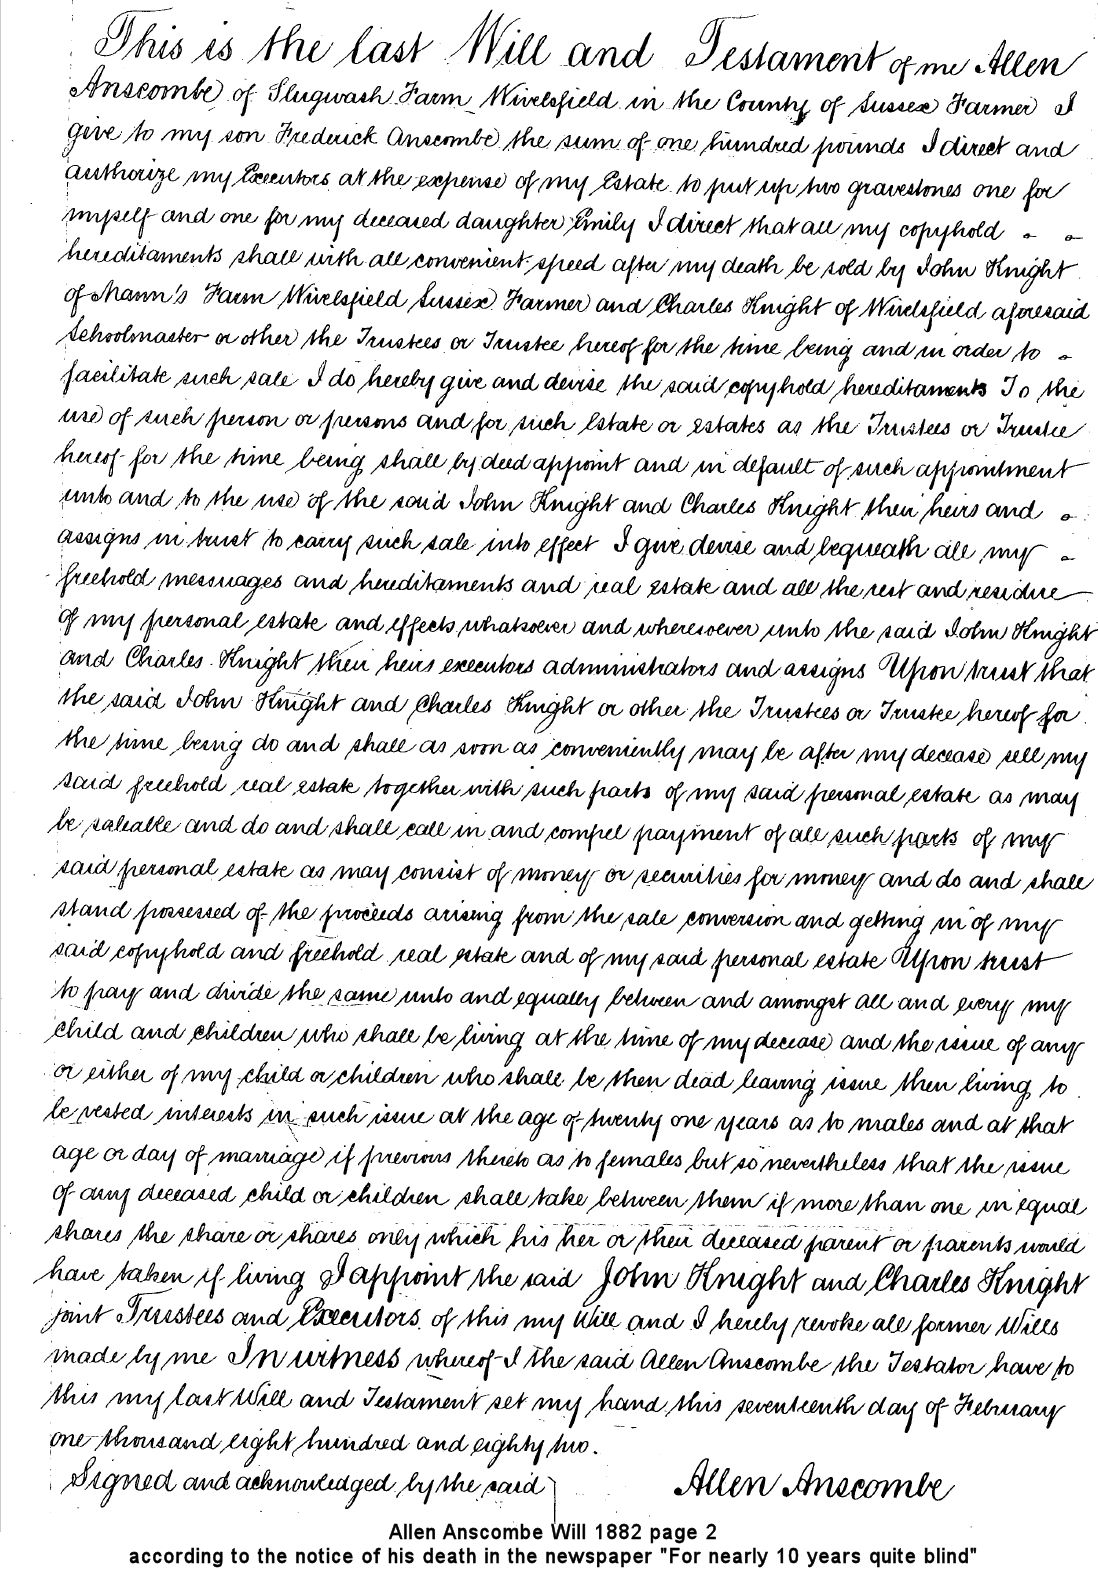 This is the last Will and Testament of me Allen
Anscombe of Slugwash Farm Wivelsfield in the County of Sussex Farmer I
give to my son Frederick Anscombe the sum of one hundred pounds I direct and
authorize my Executors at the expense of my Estate to put up two gravestones one for
myself and one for my deceased daughter Emily I direct that all my copyhold
hereditaments shall with all convenient speed after my death be sold by John Knight
of Mann's Farm Wivelsfield Sussex Farmer and Charles Knight of Wivelsfield aforesaid
Schoolmaster or other the Trustees or Trustee hereof for the time being and in order to
facilitate such sale I do hereby give and devise the said copyhold hereditaments To the
use of such person or persons and for such Estate or estates as the Trustees or Trustee
hereof for the time being shall by deed appoint and in default of such appointment
unto and to the use of the said John Knight and Charles Knight their heirs and
assigns in trust to carry such sale into effect I give devise and bequeath all my
freehold messuages and hereditaments and real estate and all the rest and residue
of my personal estate and effects whatsoever and wheresoever unto the said John Knight
and Charles Knight their heirs executors administrators and assigns Upon trust that
the said John Knight and Charles Knight or other the Trustees or Trustee hereof for
the time being do and shall as soon as conveniently may be after my decease sell my
said freehold real estate together with such parts of my said personal estate as may
be saleable and do and shall call in and compel payment of all such parts of my
said personal estate as may consist of money or securities for money and do and shall
stand possessed of the proceeds arising from the sale conversion and getting in of my
said copyhold and freehold real estate and of my said personal estate Upon trust
to pay and divide the same unto and equally between and amongst all and every my
child and children who shall be living at the time of my decease and the issue of any
or either of my child or children who shall be then dead leaving issue then living to
be vested interests in such issue at the age of twenty one years as to males and at that
age or day of marriage if previous thereto as to females but so nevertheless that the issue
of any deceased child or children shall take between them if more than one in equal
shares the share or shares only which his her or their deceased parent or parents would
have taken if living I appoint the said John Knight and Charles Knight
joint Trustees and Executors of this my Will and I hereby revoke all former Wills
made by me In witness whereof I the said Allen Anscombe the Testator have to
this my last Will and Testament set my hand this seventeenth day of February
one thousand eight hundred and eighty two.
Signed and acknowledged by the said
Allen Anscombe
Allen Anscombe Will 1882 page 2
according to the notice of his death in the newspaper "For nearly 10 years quite blind"